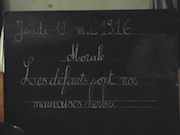 Jeudi 19 mai 1916
Morale
Les défauts sont nos
mauvaises herbes.